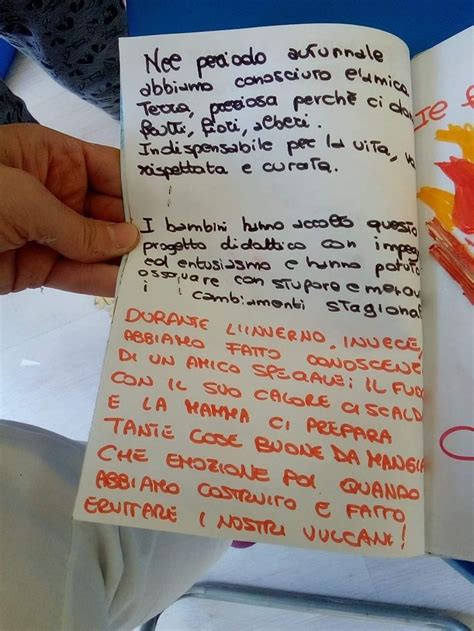 Nel periodo autunnale
abbiamo conosciuto l'amica
Terra, preziosa perché ci
frutti, fiori, alberi.
Indispensabile per la vita,
rispettata e curata.
I bambini hanno accolto questo
progetto didattico con
ed entusiasmo e hanno
osservare con stupore e
i cambiamenti
DURANTE L'INVERNO, INVECE,
ABBIAMO FATTO
DI UN AMICO SPECIALE: IL
CON IL SUO CALORE CI
E LA MAMMA CI PREPARA
TANTE COSE BUONE DA
CHE EMOZIONE POI QUANDO
ABBIAMO COSTRUITO E FATTO
ERUTTARE I NOSTRI VULCANI!